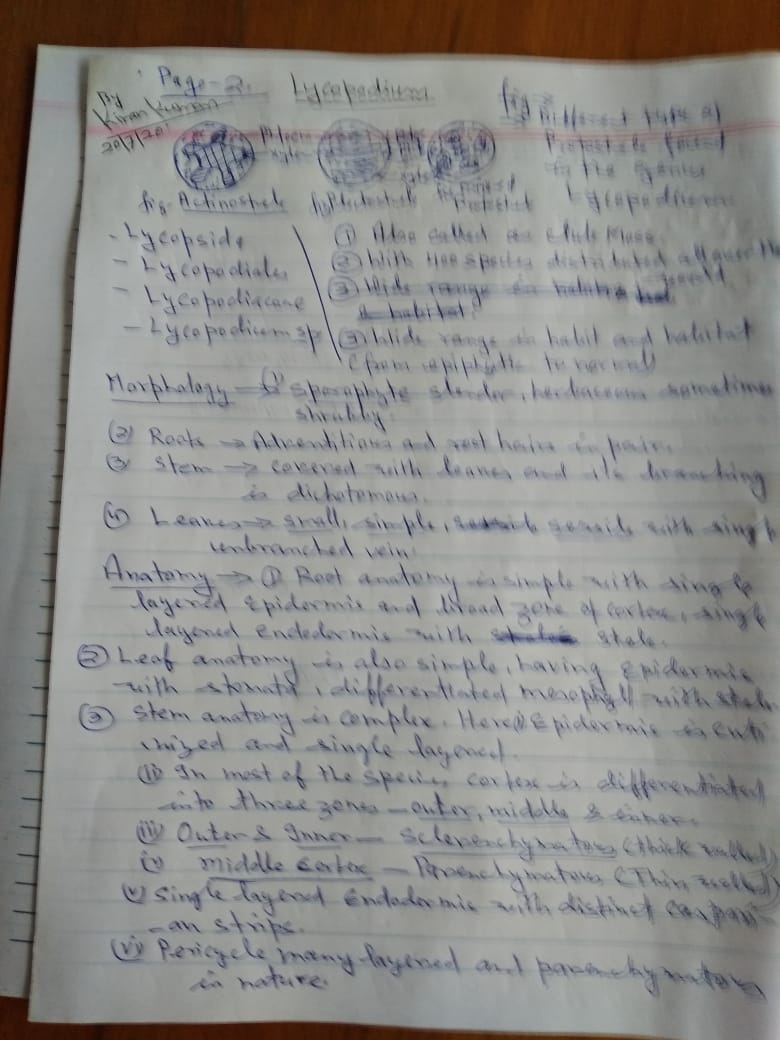 Page-2. Lycopodium
By
Kiran Kumar
20/7/20
fig-
Different type of
Protostele found
in the genus
Lycopodium
Phloem
xylem
fig-Actinostele fig Plectostele Protostele
- Lycopsida
- Lycopodiales
- Lycopodiaceae
- Lycopodium sp
① Also called as club Moss.
② With 400 species distributed all over the
world
③ Wide range in habit
habitat.
③ Wide range in habit and habitat
(from epiphytic to normal)
Morphology → ① Sporophyte slender, herbaceous sometimes
shrubby.
② Roots → Adventitious and root hairs in pair.
③ Stem → covered with leaves and its branching
is dichotomous.
④ Leaves → small, simple, sessile with single
unbranched vein.
Anatomy → ① Root anatomy is simple with single
layered epidermis and broad zone of cortex, single
layered endodermis with stele.
② Leaf anatomy is also simple, having epidermis
with stomata, differentiated mesophyll with stele.
③ Stem anatomy is complex. Here ① Epidermis is cuti
nized and single layered.
(ii) In most of the species cortex is differentiated
into three zones - outer, middle & inner.
(iii) Outer & Inner - Sclerenchymatous (thick walled)
iv) middle cortex - Parenchymatous (Thin walled)
(v) Single layered Endodermis with distinct caspari
-an strips.
(vi) Pericycle many layered and parenchymatous
in nature.